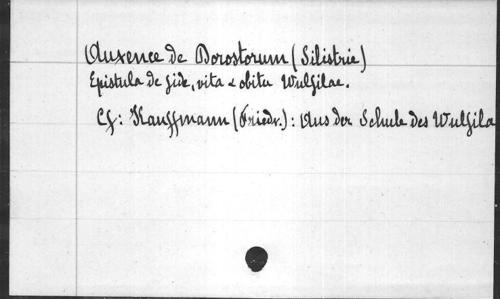 Auxence de Dorostorum (Silistrie)
Epistula de fide, vita & obitu Wulfilae.
Cf: Kauffmann (Friedr.): Aus der Schule des Wulfila